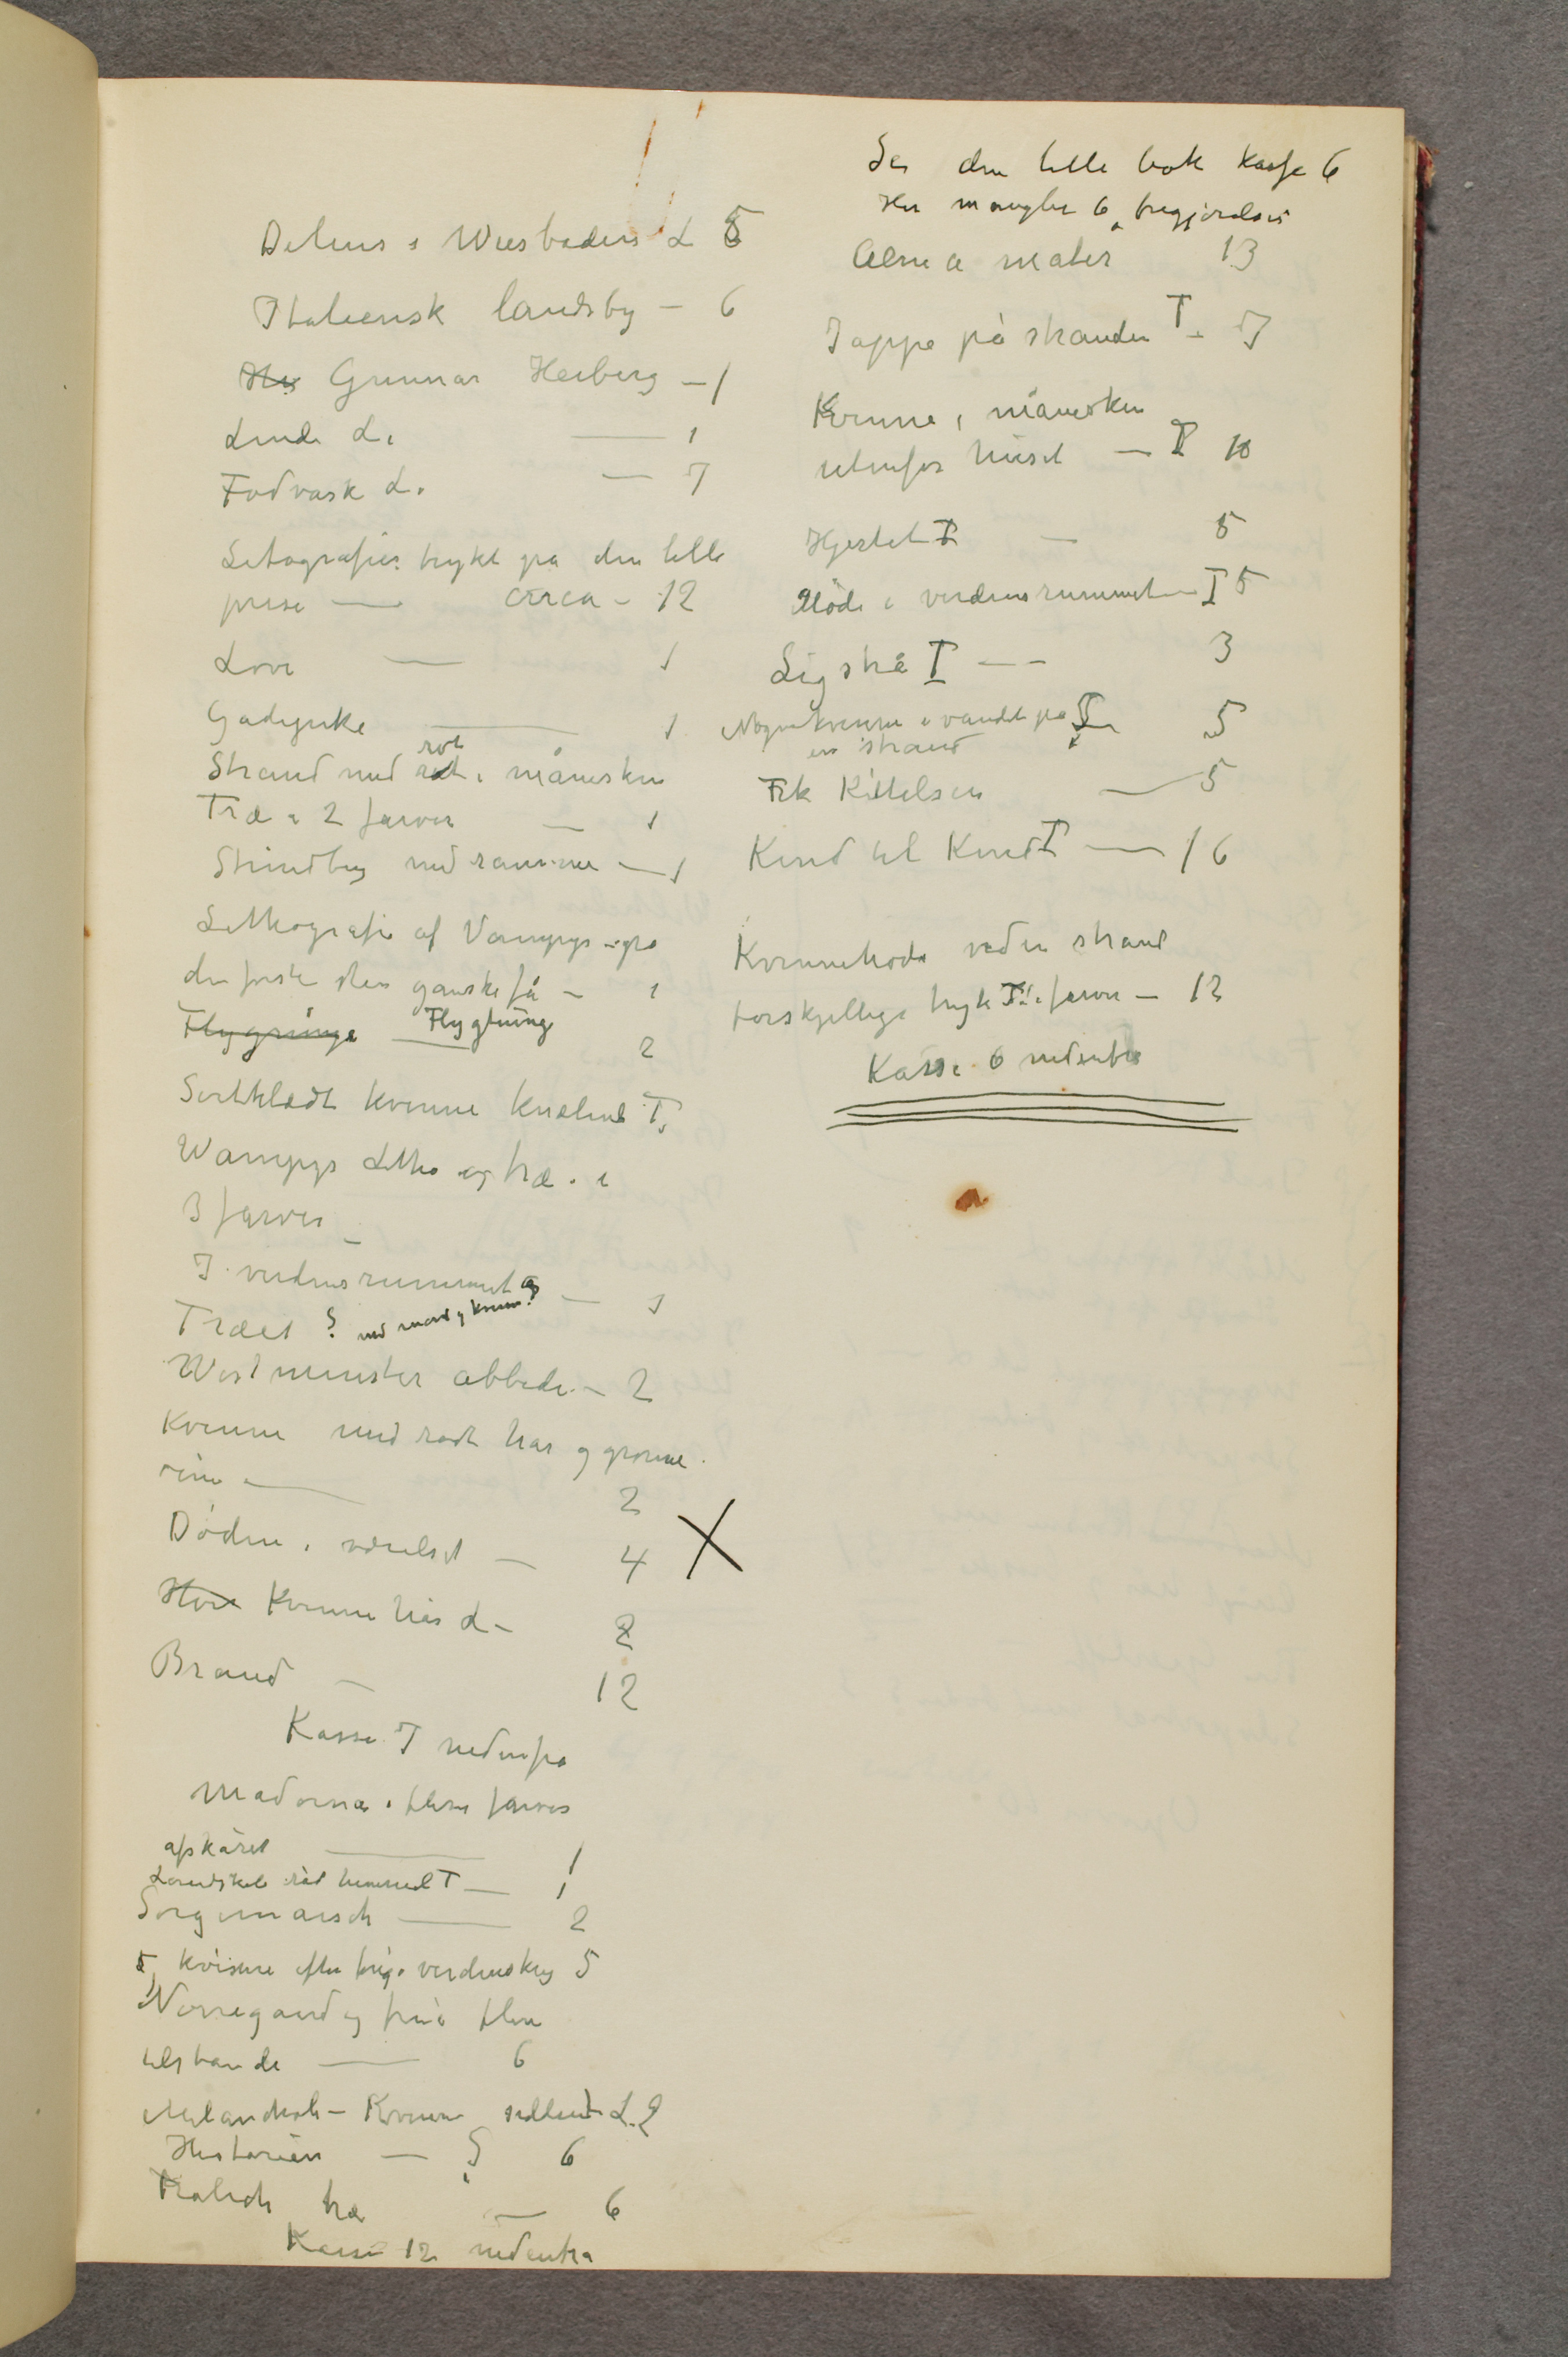 Delius i Wiesbaden L 6
Italiensk landsby – 6
Gunnar Heiberg – 1
Linde L. — 1
Fodvask L. — 7
Litografier trykt på den lille
prese — circa – 12
Love — 1
Gadeynke — 1
Strand med rot i måneskin
Træ i 2 farver — 1
Strindberg med ramme — 1
Lithografie af Vampyr – på
den første sten ganske få – 1
Flygtning 2
Sortklædt kvinne knælend T.
Wampyr Litho og træ. i
3 farver –
I verdensrummet
Træet ? med mand og kvinne? — 1
Westminster abbedi – 2
Kvinne med rødt hår og grønne
øine — 2
Døden i værelset — 4 X
Kvinnehår L – 2
Brand — 12
Kasse 7 nedenfra
Madonna i flere farver
afskåret — 1
Landskab rød himmel T — 1
Sørgemarsch — 2
5 kvisene efter krig. verdenskrig 5
Nørregaard og frue flere
tilstande — 6
Melankoli – Kvinne siddend L. 2
Historien — ? 6
Træ — 6
Kasse 12 nedenfra
Se den lille bok Kasse 6
Her mangler 6
Alma mater 13
Jappe på stranden T – 7
Kvinne i måneskin
utenfor huset — T 10
Hjertet T — 5
Møde i verdensrummet — T 5
Ligstrå T — 3
Nøgne kvinne i vandet på
en strand 5
Frk Kittelsen — 5
Kind til Kind T — 16
Kvinnehode ved en strand
forskjellige tryk T. i farver — 12
Kasse 6 nedenfra